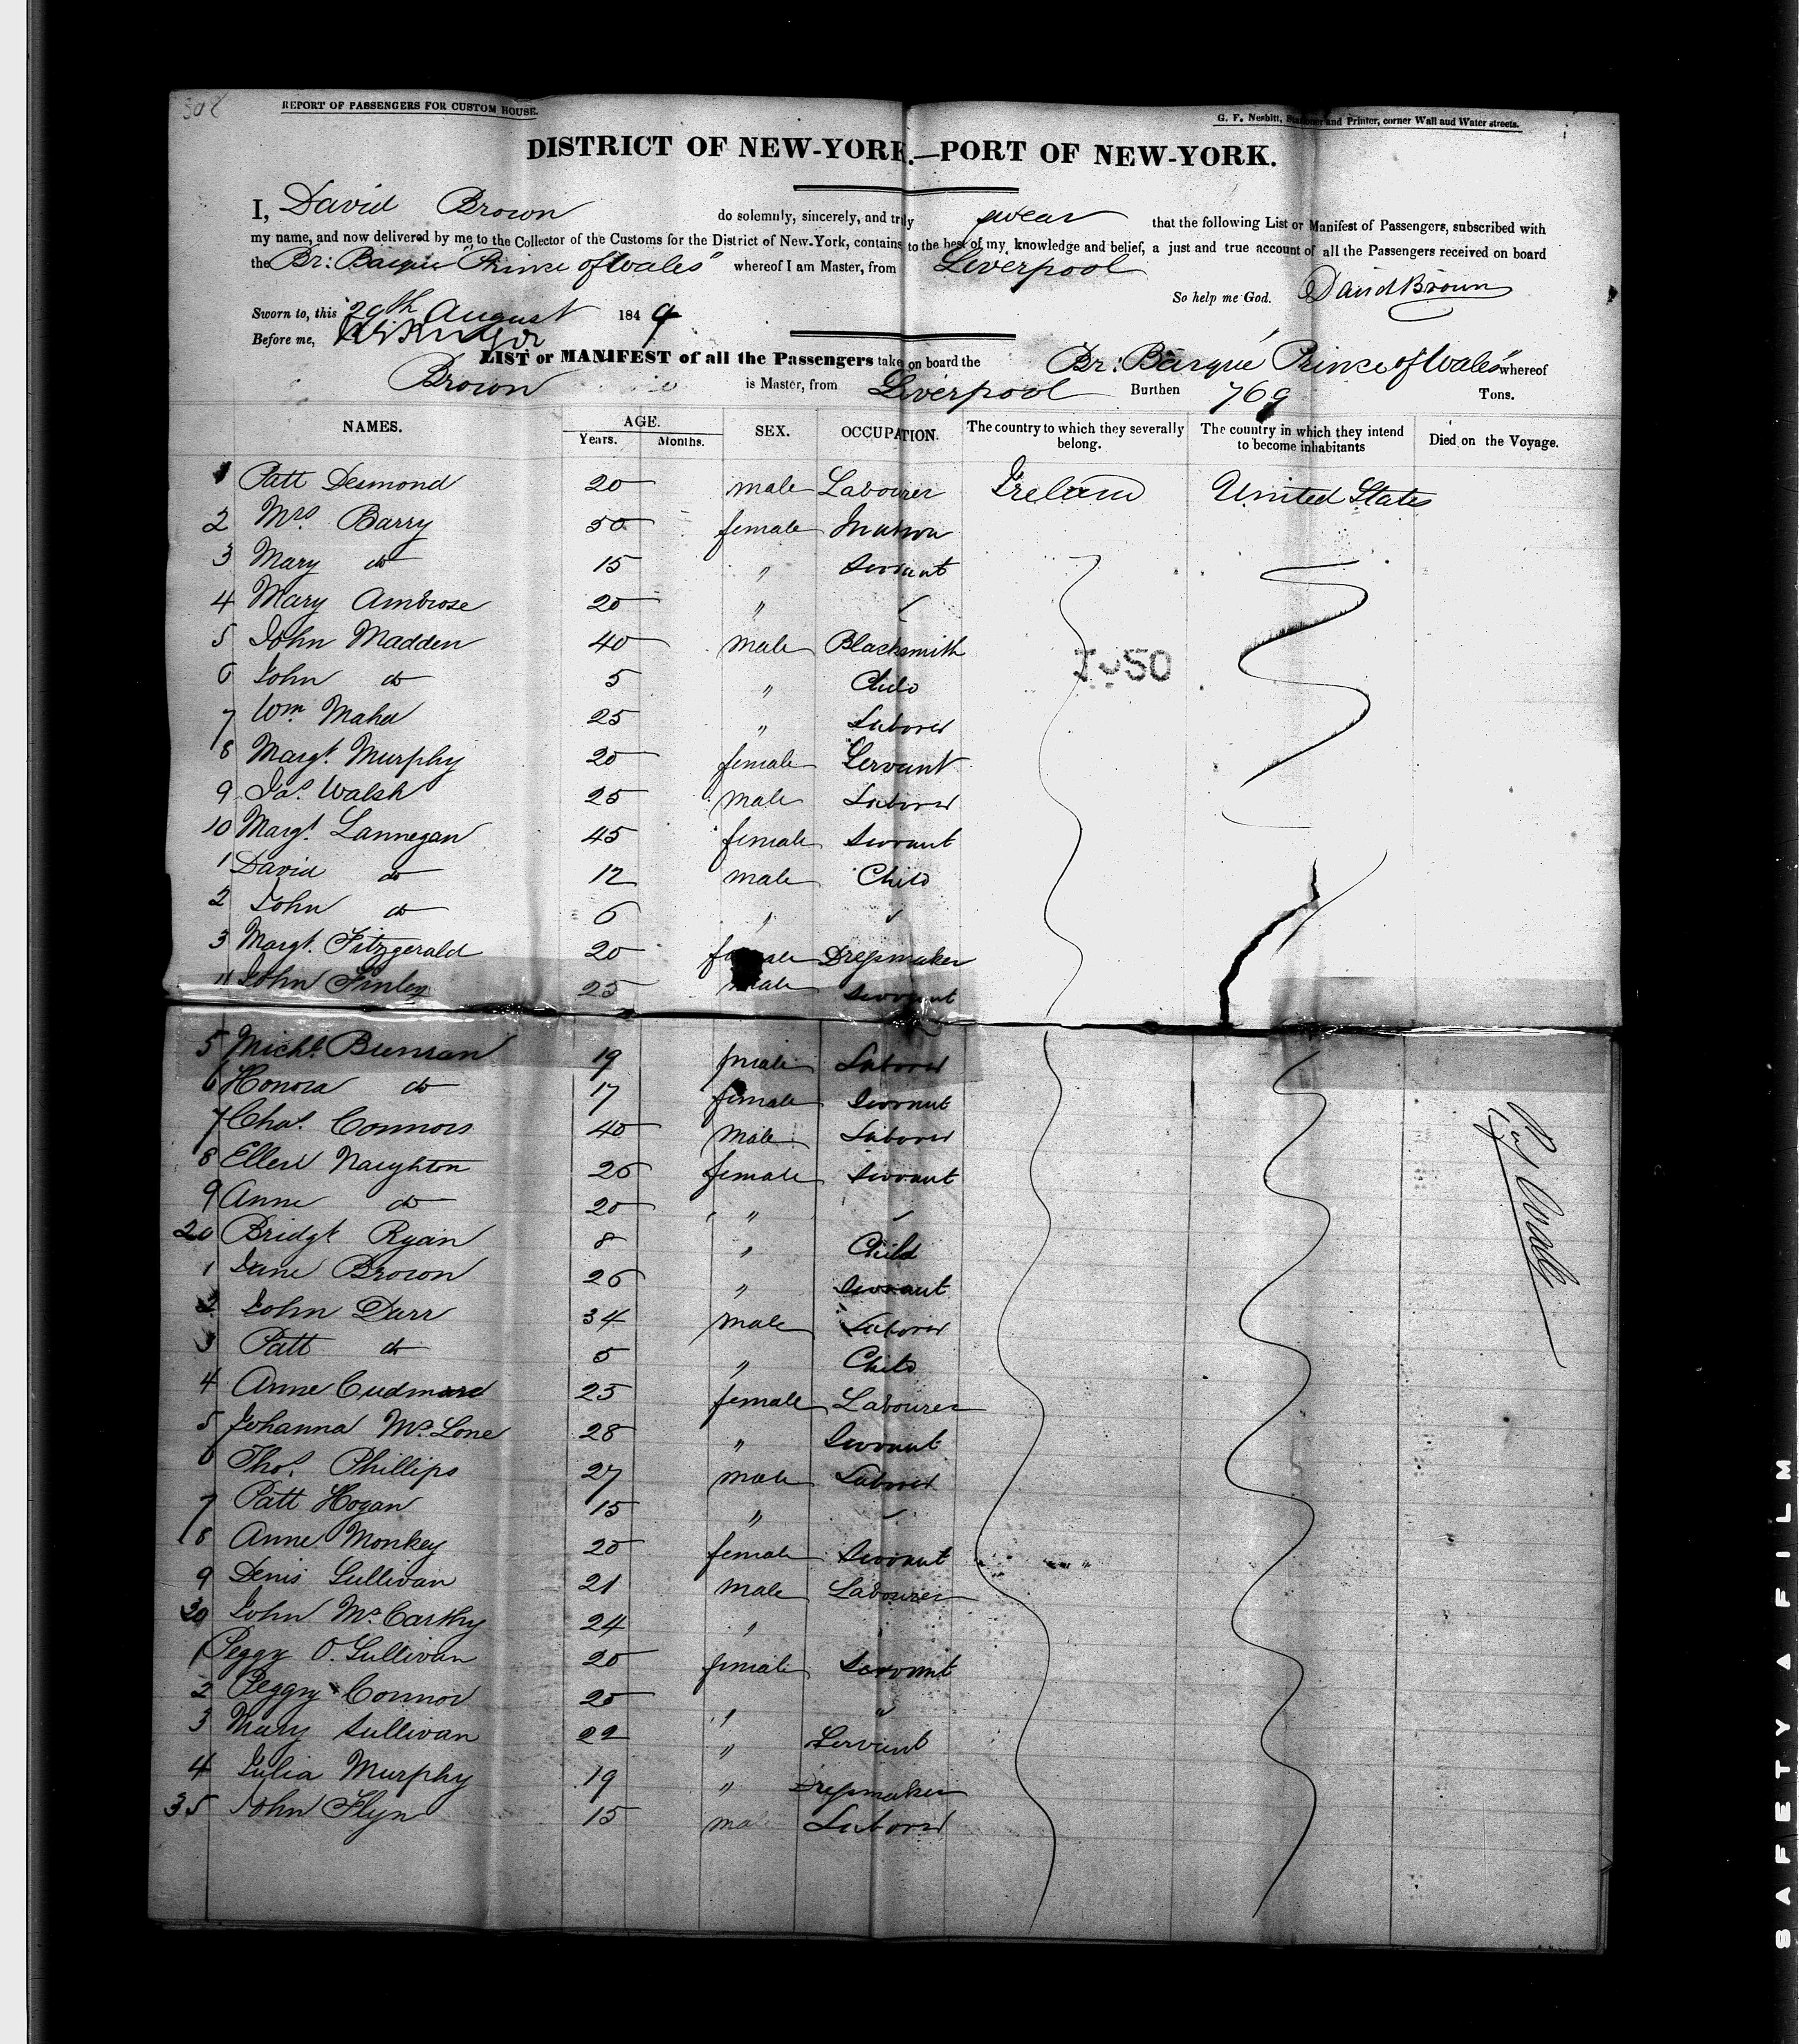 308
REPORT OF PASSENGERS FOR CUSTOM HOUSE.
G. F. Nesbitt, Stationer and Printer, corner Wall and Water streets.
DISTRICT OF NEW-YORK.—PORT OF NEW-YORK.
I, David Brown do solemnly, sincerely, and truly swear that the following List or Manifest of Passengers, subscribed with
my name, and now delivered by me to the Collector of the Customs for the District of New-York, contains to the best of my knowledge and belief, a just and true account of all the Passengers received on board
the Br: Barque "Prince of Wales" whereof I am Master, from Liverpool
So help me God. David Brown
Sworn to, this 29th August 1849
Before me,
LIST or MANIFEST of all the Passengers take on board the Br: Barque Prince of Wales" whereof
Brown is Master, from Liverpool Burthen 769 Tons.
NAMES. AGE. SEX. OCCUPATION. The country to which they severally belong. The country in which they intend to become inhabitants Died on the Voyage.
Years. Months.
1 Patt Desmond 20 male Labourer Ireland United States
2 Mrs Barry 50 female Matron
3 Mary do 15 " Servant
4 Mary Ambrose 20 " "
5 John Madden 40 male Blacksmith
6 John do 5 " Child
7 Wm Maher 25 " Laborer
8 Margt. Murphy 20 female Servant
9 Jas. Walsh 25 male Laborer
10 Margt. Lannegan 45 female Servant
1 David do 12 male Child
2 John do 6 " "
3 Margt. Fitzgerald 20 female Dressmaker
4 John Finley 25 male Servant
5 Michl. Brennan 19 male Laborer
6 Honora do 17 female Servant
7 Chas. Connors 40 male Laborer
8 Ellen Naughton 26 female Servant
9 Anne do 20 " "
20 Bridgt Ryan 8 " Child
1 Jane Brown 26 " Servant
2 John Darr 34 male Laborer
3 Patt do 5 " Child
4 Anne Cudmore 25 female Labourer
5 Johanna McLone 28 " Servant
6 Thos. Phillips 27 male Laborer
7 Patt Hogan 15 " "
8 Anne Monkey 20 female Servant
9 Denis Sullivan 21 male Labourer
30 John McCarthy 24 " "
1 Peggy O.Sullivan 20 female Servant
2 Peggy Connor 20 " "
3 Mary Sullivan 22 " Servant
4 Julia Murphy 19 " Dressmaker
35 John Flyn 15 male Laborer
SAFETY FILM